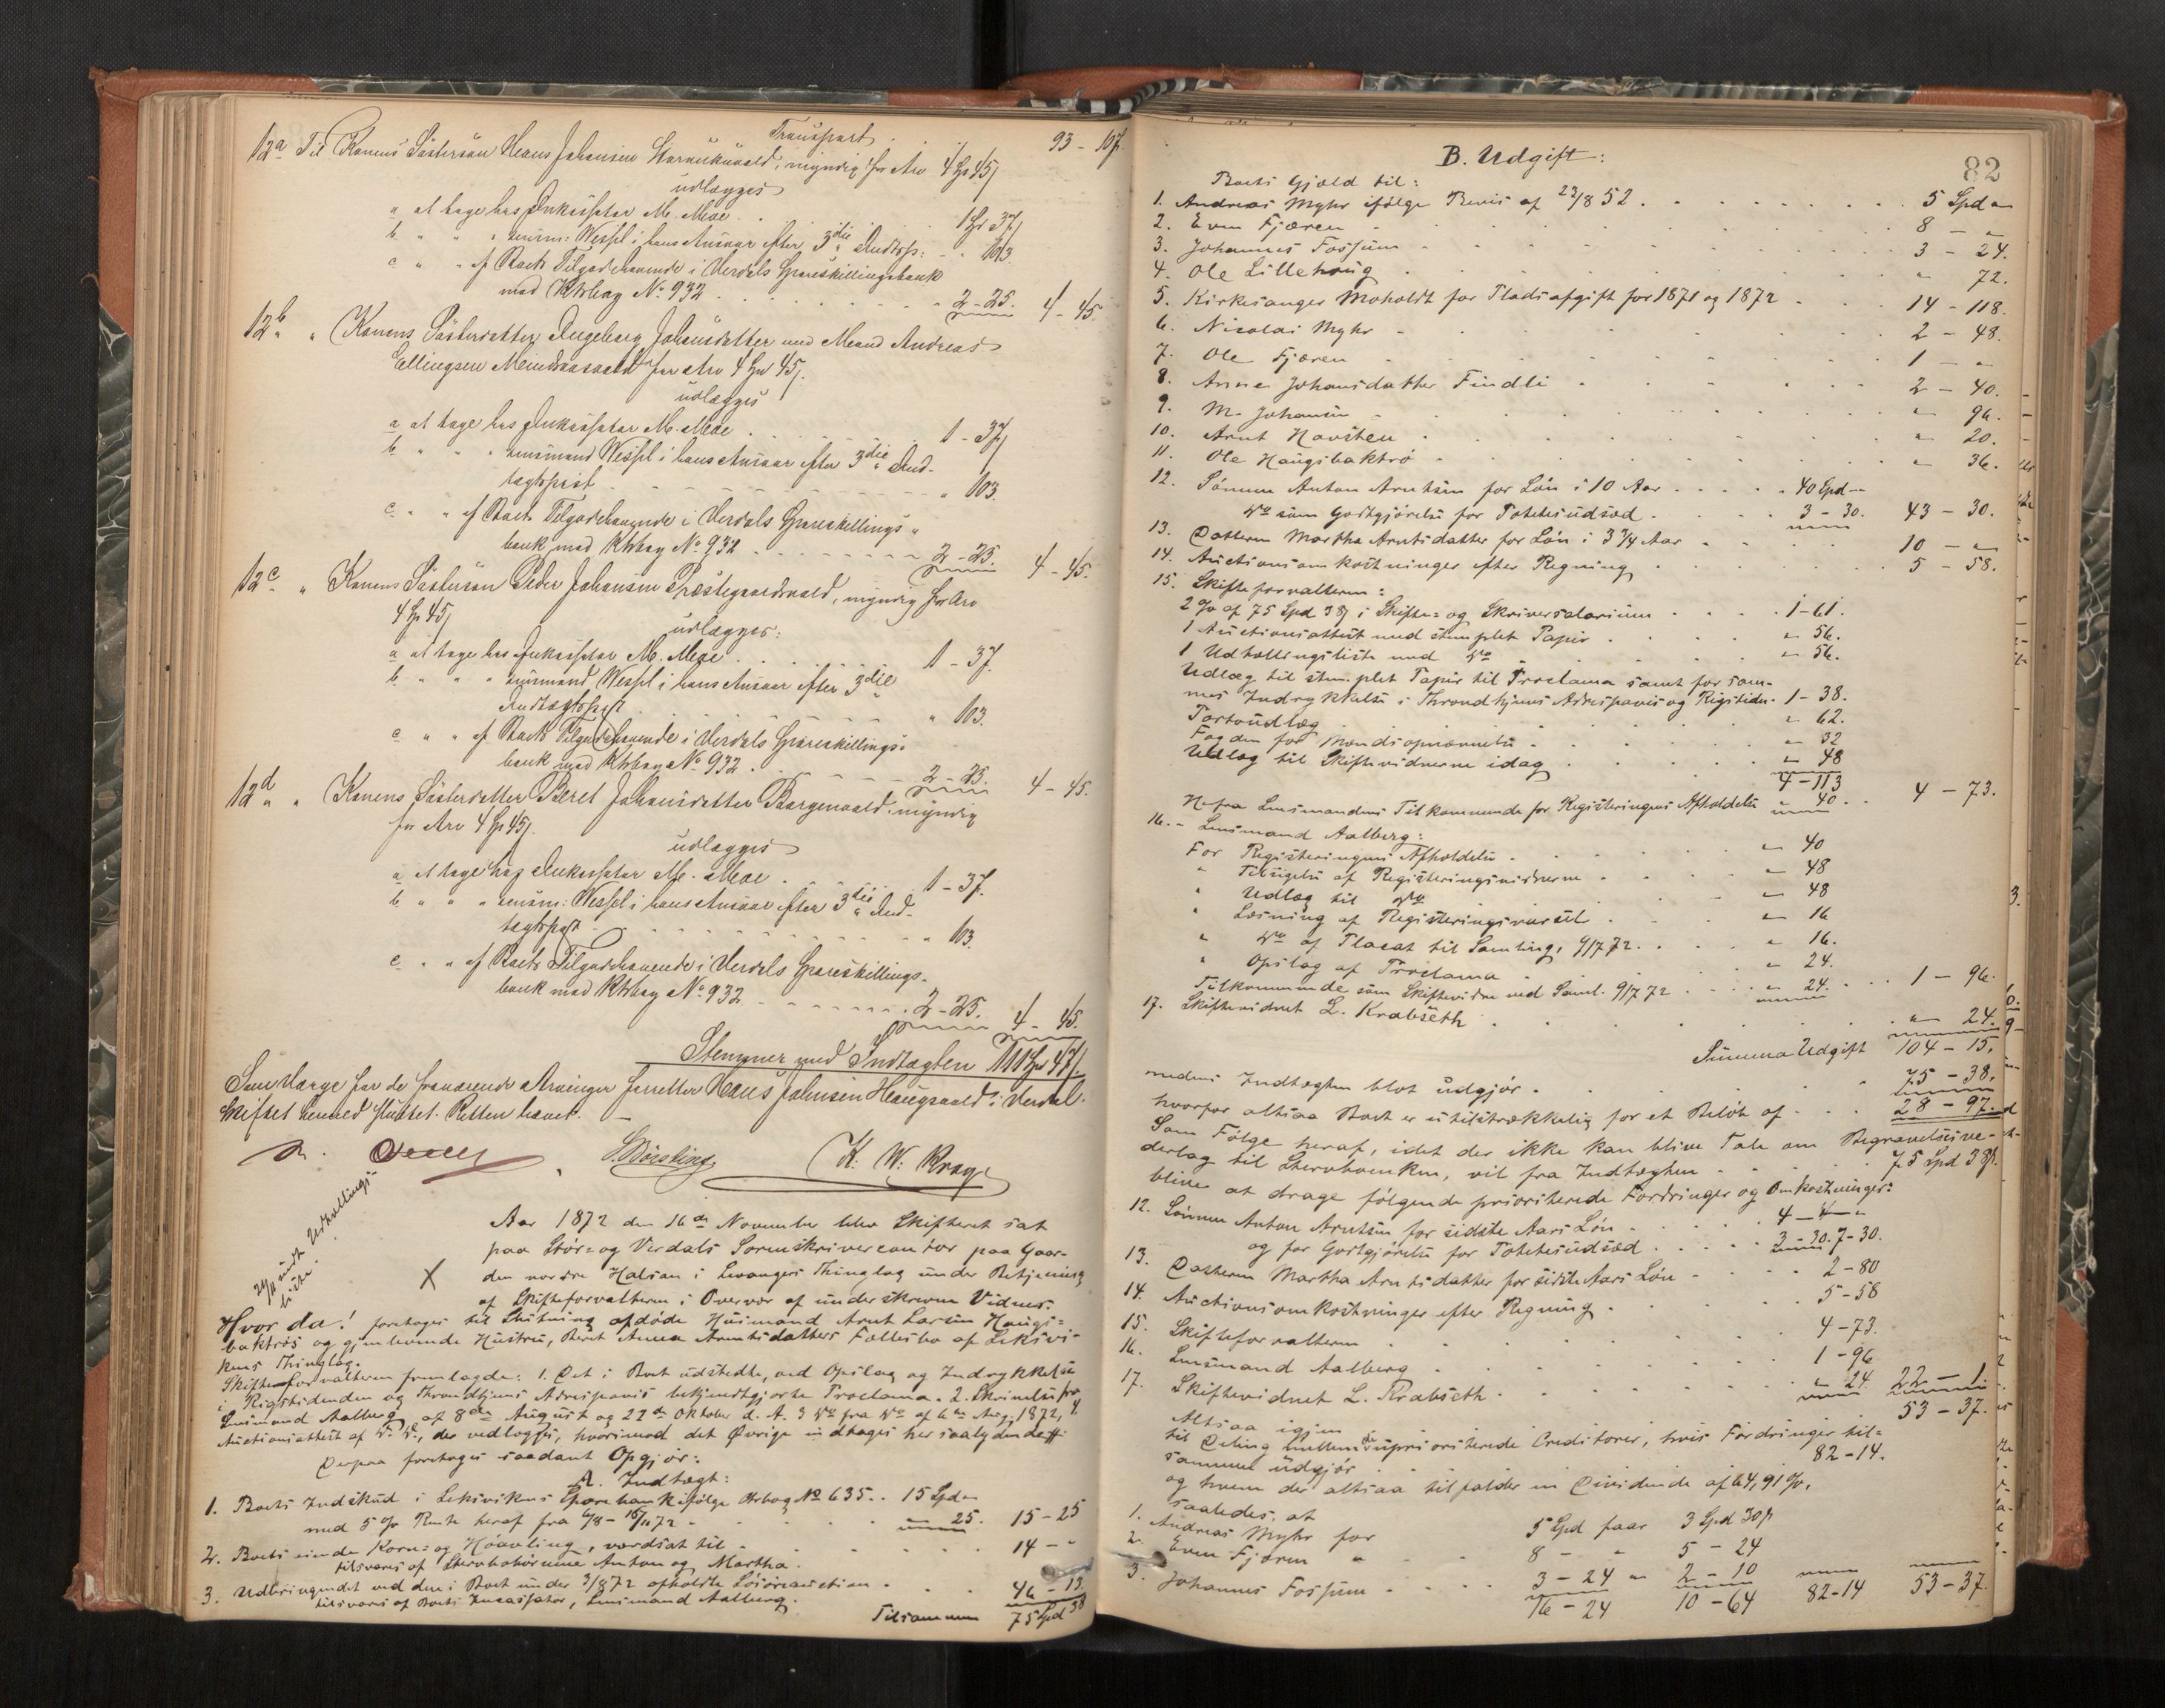 Transport . . 93 - 107.
12a Til Konens Søstersøn Hans Johansen Stornukvald, myndig for Arv 4 Spd 45 s
udlægges
a at tage hos Inkassator M. Moe . . 1 Spd 37 s
b " " " Lensm: Wessel i hans Ansvar efter 3die Indtgtp: - " 103.
c " " af Boets Tilgodehavende i Verdals Spareskillingsbank
med Ktrbog No 932 . . . 2 - 25. 4 - 45.
12b " Konens Søsterdatter Ingeborg Johansdatter med Mand Andreas
Ellingsen Meindsaasvald for Arv 4 Spd 45 s.
udlægges
a at tage hos Inkassator M. Moe . . . 1 - 37 s
b " " " Lensmand Wessel i hans Ansvar efter 3die Ind-
tægtspost . . . " 103.
c " " af Boets Tilgodehavende i Verdals Spareskillings-
bank med Ktrbog No 932 . . . 2 - 25. 4 - 45.
12c " Konens Søstersøn Peder Johansen Præstegaardsvald, myndig for Arv
4 Spd 45 s
udlægges:
a at tage hos Inkassator M. Moe . . . 1 - 37.
b " " " Lensmand Wessel i hans Ansvar efter 3die
Indtægtspost . . . " 103.
c " " af Boets Tilgodehavende i Verdals Spareskillings-
bank med Ktrbog No 932 . . . 2 - 25. 4 - 45.
12d " Konens Søsterdatter Beret Johansdatter Borgenvald, myndig
for Arv 4 Spd 45 s.
udlægges
a at tage hos Inkassator M. Moe . . . 1 - 37.
b " " " Lensm: Wessel i hans Ansvar efter 3die Ind-
tægtspost . . . " 103.
c " " af Boets Tilgodehavende i Verdals Spareskillings-
bank med Ktrbog No 932 . . . 2 - 25. 4 - 45.
Stemmer med Indtægten 111 Spd 47 s.
Som Værge for de fraværende Arvinger forretter Hans Johnsen Haugsvald i Verdal.
Skiftet hermed sluttet. Retten hævet. -
S. Børsting K. W. Krog
Aar 1872 den 16de November blev Skifteret sat
paa Stør- og Verdals Sorenskrivercontor paa Gaar-
den nordre Halsan i Levangers Thinglag under Betjening
af Skifteforvalteren i Overvær af underskrevne Vidner.
Hvor da! foretages til Slutning afdøde Husmand Arnt Larsen Haugs-
baktrøs og gjenlevende Hustru, Beret Anna Arntsdatters Fællesbo af Leksvi-
kens Thinglag.
Skifteforvalteren fremlagde: 1. Det i Boet udstedte, ved Opslag og Indrykkelse
i Rigstidenden og Throndhjems Adresseavis bekjendtgjorte Proclama. 2. Skrivelse fra
Lensmand Aalberg af 8de August og 22de Oktober d. A. 3 do fra do af 6te Aug. 1872, 4.
Auctionsattest af d. D., der vedlægges, hvorimod det Øvrige indtages her saalydende #:
Derpaa foretoges saadant Opgjør:
A. Indtægt:
1. Boets Indskud i Leksvikens Sparebank ifølge Ktrbog No 635 . . 15 Spd "
med 5 % Rente heraf fra 6/8 - 16/11 72 - . . . " 25. 15 - 25
2. Boets eiende Korn- og Høavling, værdsat til . . . 14 - "
tilsvares af Stervbobørnene Anton og Martha.
3. Udbringendet ved den i Boet under 3/8 72 afholdte Løsøreauction . . . 46 - 13.
tilsvares af Boets Incassator, Lensmand Aalberg.
Tilsammen 75 Spd 38
82
B. Udgift:
Boets Gjæld til:
1. Andreas Myhr ifølge Bevis af 23/8 52 . . . 5 Spd "
2. Even Fjæren . . . 8 - "
3. Johannes Fossum . . . 3 - 24.
4. Ole Lillehaug . . . " 72.
5. Kirkesanger Moholdt for Pladsafgift for 1871 og 1872 . . . 14 - 118.
6. Nicolai Myhr . . . 2 - 48.
7. Ole Fjæren . . . 1 - "
8. Anne Johansdatter Findli . . . 2 - 40.
9. M. Johansen . . . " 96.
10. Arnt Hovsteen . . . " 20.
11. Ole Haugsbaktrø . . . " 36.
12. Sønnen Anton Arntsen for Løn i 10 Aar . . . 40 Spd "
do som Godtgjørelse for Potetesudsæd . . . 3 - 30. 43 - 30.
13. Datteren Martha Arntsdatter for Løn i 3 3/4 Aar . . . 10 - "
14. Auctionsomkostninger efter Regning . . . 5 - 58.
15. Skifteforvalteren:
2 % af 75 Spd 38 s i Skifte- og Skriversalarium . . . 1 - 61.
1 Auctionsattest med stemplet Papir . . . " 56.
1 Udkallingsliste med do . . . " 56.
Udlæg til stemplet Papir til Proclama samt for sam-
mes Indrykkelse i Throndhjems Adresseavis og Rigstiden. 1 - 38.
Portoudlæg . . . " 62.
Fogden for Mændsopnævnelse . . . " 32
Udlæg til Skiftevidnerne idag . . . " 48
4 - 113
Herfra Lensmandens Tilkommende for Registeringens Afholdelse " 40. 4 - 73.
16. Lensmand Aalberg:
For Registeringens Afholdelse . . . " 40
" Tilsigelse af Registeringsvidnerne . . . " 48
" Udlæg til do . . . " 48
" Læsning af Registeringsvarsel . . . " 16
" do af Placat til Samling, 9/7 72 . . . " 16.
" Opslag af Proclama . . . " 24.
Tilkommende som Skiftevidne ved Saml. 9/7 72 . . . " 24. 1 - 96.
17. Skiftevidnet L. Krabseth . . . " 24.
Summa Udgift 104 - 15.
medens Indtægten blot udgjør . . . 75 - 38.
hvorfor altsaa Boet er utilstrækkelig for et Beløb af . . . 28 - 97.
Som Følge heraf, idet der ikke kan blive Tale om Begravelsesve-
derlag til Stervboenken, vil fra Indtægten . . . 75 Spd 38 s.
blive at drage følgende prioriterede Fordringer og Omkostninger:
12. Sønnen Anton Arntsen for sidste Aars Løn . . . 4 - "
og for Godtgjørelse for Potetesudsæd . . . 3 - 30. 7 - 30.
13. Datteren Martha Arntsdatter for sidste Aars Løn . . . 2 - 80
14. Auctionsomkostninger efter Regning . . . 5 - 58
15. Skifteforvalteren . . . 4 - 73.
16. Lensmand Aalberg . . . 1 - 96
17. Skiftevidnet L. Krabseth . . . " 24. 22 - 1
Altsaa igjen . . . 53 - 37.
til Deling mellem de upriorterede Creditorer, hvis Fordringer til-
sammen udgjør . . . 82 - 14.
og hvem der altsaa tilfalder en Dividende af 64,91 %,
saaledes, at
1. Andreas Myhr for 5 Spd faar 3 Spd 30 s
2. Even Fjæren " 8 - " 5 - 24
3. Johannes Fossum . . . 3 - 24 " 2 - 10
16 - 24 10 - 64 82 - 14 53 - 37.